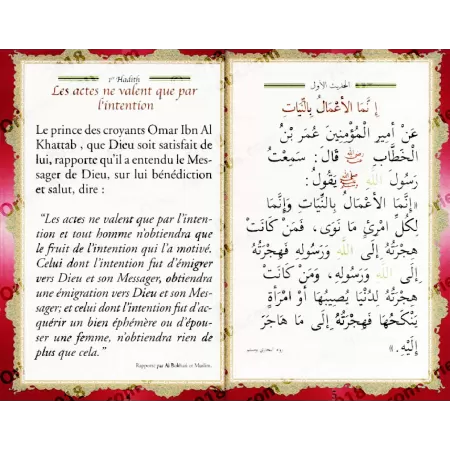 1er Hadith
Les actes ne valent que par
l'intention
Le prince des croyants Omar Ibn Al
Khattab , que Dieu soit satisfait de
lui, rapporte qu'il a entendu le Mes-
sager de Dieu, sur lui bénédiction
et salut, dire :
“Les actes ne valent que par l'inten-
tion et tout homme n'obtiendra que
le fruit de l'intention qui l'a motivé.
Celui dont l'intention fut d'émigrer
vers Dieu et son Messager, obtiendra
une émigration vers Dieu et son Mes-
sager; et celui dont l'intention fut d'ac-
quérir un bien éphémère ou d'épou-
ser une femme, n'obtiendra rien de
plus que cela.”
Rapporté par Al Bukhari et Muslim.
الحديث الأول
إِنَّمَا الأَعْمَالُ بِالنِّيَّاتِ
عَنْ أَمِيرِ الْمُؤْمِنِينَ عُمَرَ بْنِ
الْخَطَّابِ قَالَ: سَمِعْتُ
رَسُولَ اللَّهِ ﷺ يَقُولُ:
«إِنَّمَا الأَعْمَالُ بِالنِّيَّاتِ وَإِنَّمَا
لِكُلِّ امْرِئٍ مَا نَوَى، فَمَنْ كَانَتْ
هِجْرَتُهُ إِلَى اللَّهِ وَرَسُولِهِ فَهِجْرَتُهُ
إِلَى اللَّهِ وَرَسُولِهِ، وَمَنْ كَانَتْ
هِجْرَتُهُ لِدُنْيَا يُصِيبُهَا أَوْ امْرَأَةٍ
يَنْكَحُهَا فَهِجْرَتُهُ إِلَى مَا هَاجَرَ
إِلَيْهِ.»
رواه البخاري ومسلم